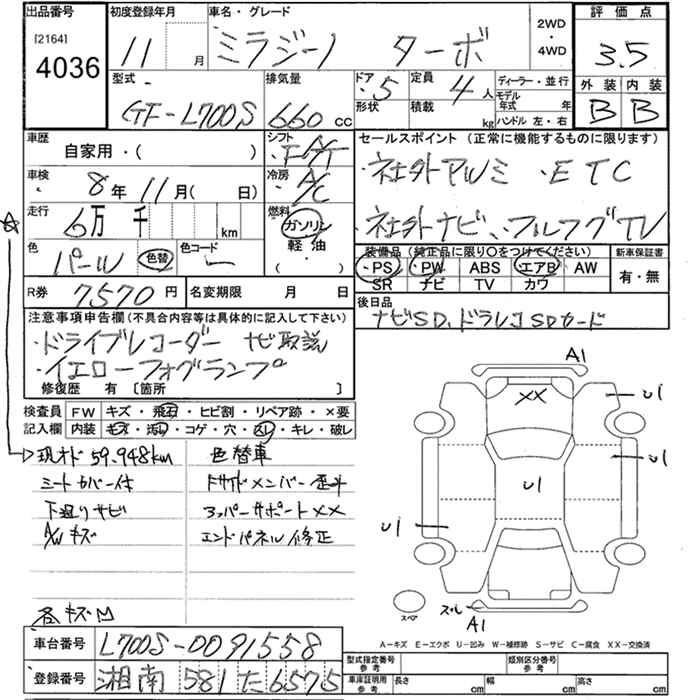 出品番号
[2164]
4036
初度登録年月
11 月
車名・グレード
ミラジーノ ターボ
2WD
・
4WD
評価点
3.5
外装 内装
B B
型式
GF-L700S
排気量
660 cc
ドア 5
形状
定員 4 人
積載 kg
ディーラー・並行
モデル年式 年
ハンドル 左・右
車歴
自家用・( )
シフト
冷房
A/C
車検
8年11月( 日)
走行
6万 千 km
燃料
ガソリン
軽油
( )
色
パール
色替
色コード
R券 7570 円
名変期限 月 日
セールスポイント (正常に機能するものに限ります)
・社外アルミ ・ETC
・社外ナビ、フルセグTV
装備品 (純正品に限り〇をつけてください)
PS PW ABS エアB AW
SR ナビ TV カワ
新車保証書
有・無
後日品
ナビSD、ドラレコSDカード
注意事項申告欄(不具合内容等は具体的に記入して下さい)
・ドライブレコーダー ナビ取説
・イエローフォグランプ
修復歴 有 〔箇所 〕
検査員 FW キズ・飛石・ヒビ割・リペア跡・×要
記入欄 内装 キズ・汚れ・コゲ・穴・スレ・キレ・破レ
☆
現オド 59.948km
シートカバー付
下廻りサビ
A/Wキズ
各キズM
色替車
Fサイドメンバー歪み
コアッパーサポートXX
エンドパネル修正
A1
XX
U1
U1
U1
U1
スペア
スレ
A1
A-キズ E-エクボ U-凹み W-補修跡 S-サビ C-腐食 XX-交換済
車台番号 L700S-0091558
登録番号 湘南 581 た 6575
型式指定番号
参考
類別区分番号
参考
車庫証明用
参考
長さ cm
幅 cm
高さ cm